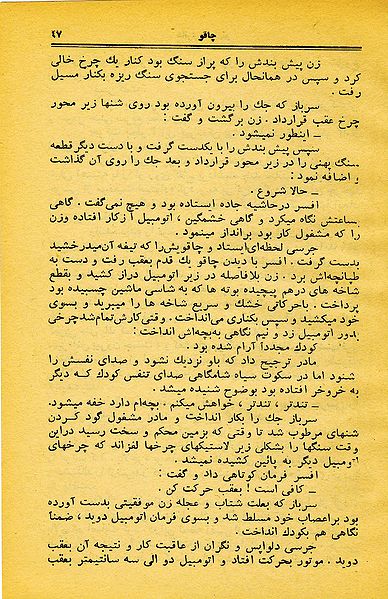 چاقو
۲۷
زن پیش بندش را که پراز سنگ بود کنار یك چرخ خالی
کرد و سپس در همانحال برای جستجوی سنگ ریزه بکنار مسیل
رفت .
سرباز که جك را بیرون آورده بود روی شنها زیر محور
چرخ عقب قرارداد . زن برگشت و گفت :
ـ اینطور نمیشود .
سپس پیش بندش را با یکدست گرفت و با دست دیگر قطعه
سنگ پهنی را در زیر محور قرارداد و بعد جك را روی آن گذاشت
و اضافه نمود :
ـ حالا شروع .
افسر درحاشیه جاده ایستاده بود و هیچ نمی‌گفت . گاهی
بساعتش نگاه میکرد و گاهی خشمگین ، اتومبیل از کار افتاده وزن
را که مشغول کار بود برانداز مینمود .
جرسی لحظه‌ای ایستاد و چاقویش را که تیغه آن میدرخشید
بدست گرفت . افسر با دیدن چاقو یك قدم بعقب رفت و دست به
طپانچه‌اش برد . زن بلافاصله در زیر اتومبیل دراز کشید و بقطع
شاخه های درهم پیچیده بوته ها که به شاسی ماشین چسبیده بود
پرداخت . باحرکاتی خشك و سریع شاخه ها را میبرید و بسوی
خود میکشید و سپس بکناری می‌انداخت . وقتی کارش تمام شد چرخی
بدور اتومبیل زد و نیم نگاهی به‌بچه‌اش انداخت :
کودك مجدداً آرام شده بود .
مادر ترجیح داد که باو نزدیك نشود و صدای نفسش را
نشنود اما در سکوت سیاه شامگاهی صدای تنفس کودك که دیگر
به خروخر افتاده بود بوضوح شنیده میشد .
ـ تندتر ، تندتر ، خواهش میکنم . بچه‌ام دارد خفه میشود.
سرباز جك را بکار انداخت و مادر مشغول گود کردن
شنهای مرطوب شد تا وقتی که بزمین محکم و سخت رسید دراین
وقت سنگها را بشکلی زیر لاستیکهای چرخها لغزاند که چرخهای
اتومبیل دیگر به پائین کشیده نمیشد .
افسر فرمان کوتاهی داد و گفت :
ـ کافی است ! بعقب حرکت کن .
سرباز که بعلت شتاب و عجله زن موفقیتی بدست آورده
بود براعصاب خود مسلط شد و بسوی فرمان اتومبیل دوید ، ضمناً
نگاهی هم بکودك انداخت .
جرسی دلواپس و نگران از عاقبت کار و نتیجه آن بعقب
دوید . موتور بحرکت افتاد و اتومبیل دو الی سه سانتیمتر بعقب